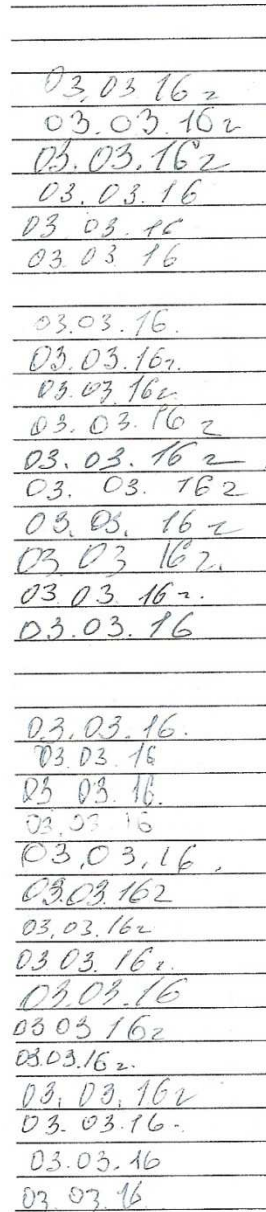 03,03 16 г
03.03.16 г
03.03.16г
03.03.16
03 03.16
03 03 16
03.03.16.
03.03.16г.
03.03 16г.
03.03.16 г
03.03.16 г
03. 03. 16 г
03.03. 16 г
03 03 16 г.
03 03 16 г.
03.03.16
03.03.16.
03 03 16
03 03.16.
03.03 16
03,03,16.
03.03.16г
03,03.16г
03 03.16 г.
03.03.16
03 03 16г
03.03.16 г.
03,03,16г
03.03.16.
03.03.16
03 03.16